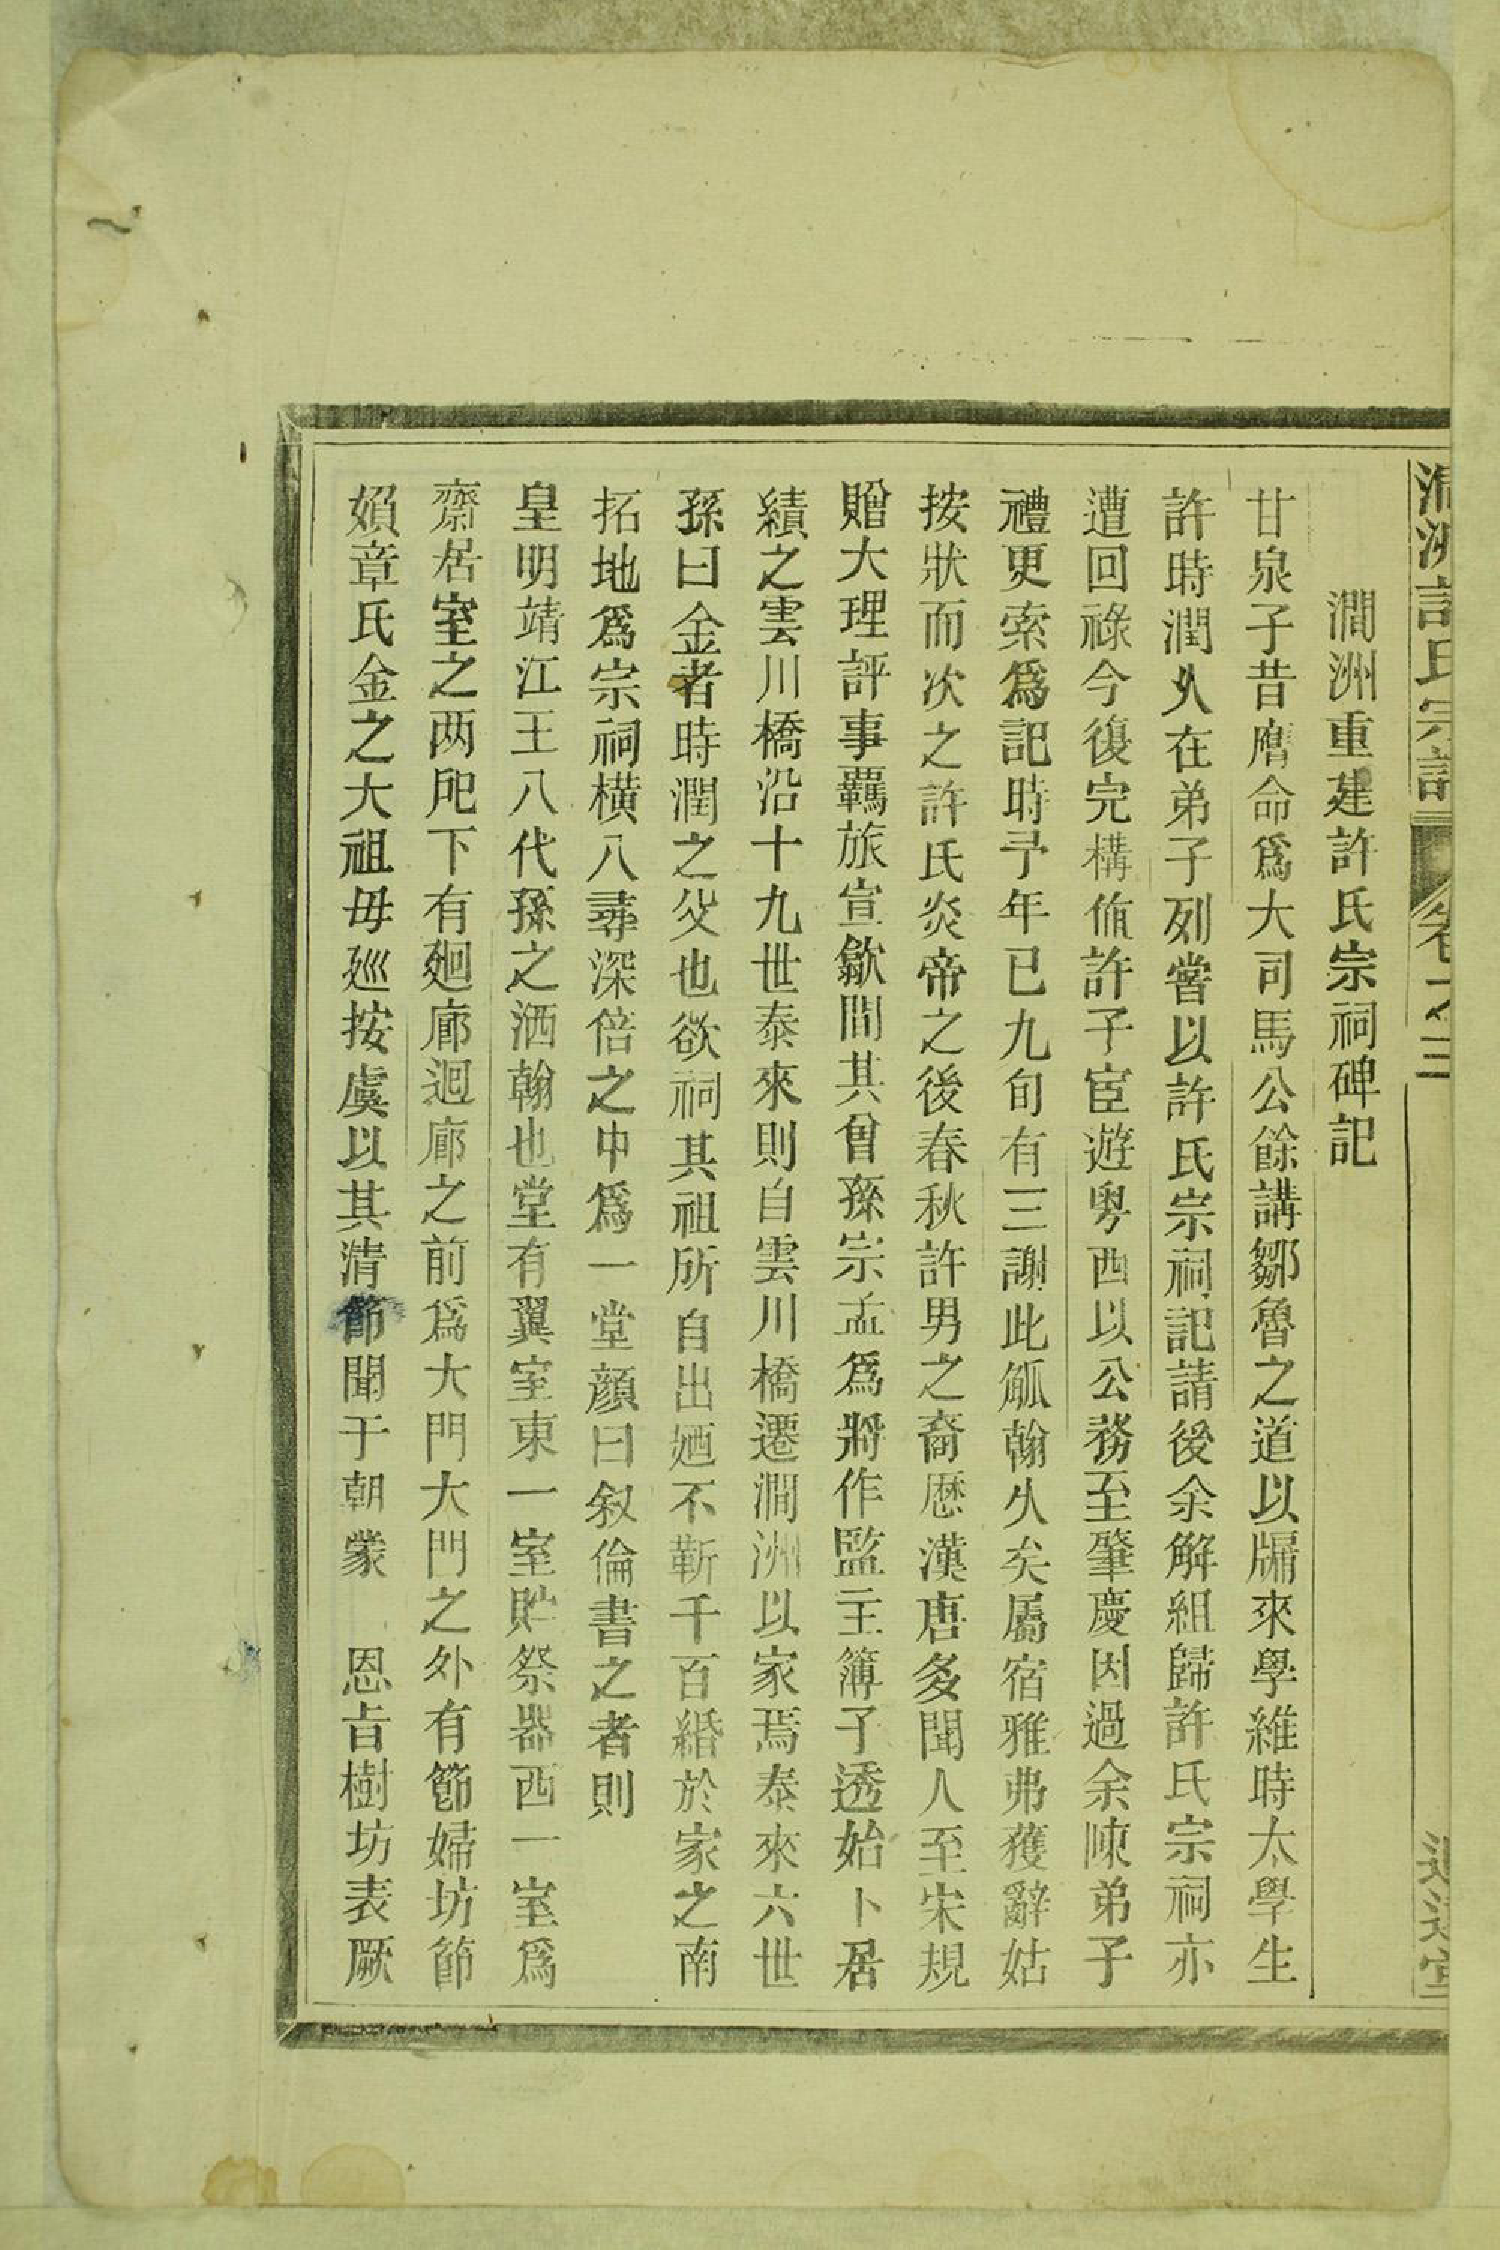 澗洲許氏宗譜 卷之三
澗洲重建許氏宗祠碑記
甘泉子昔膺命爲大司馬公餘講鄒魯之道以牖來學維時太學生
許時潤久在弟子列嘗以許氏宗祠記請後余解組歸許氏宗祠亦
遭回祿今復完構侑許子宦遊粤西以公務至肇慶因過余陳弟子
禮更索爲記時予年已九旬有三謝此觚翰久矣屬宿雅弗獲辭姑
按狀而次之許氏炎帝之後春秋許男之裔歷漢唐多聞人至宋規
贈大理評事羈旅宣歙間其曾孫宗孟爲將作監主簿子透始卜居
績之雲川橋沿十九世泰來則自雲川橋遷澗洲以家焉泰來六世
孫曰金者時潤之父也欲祠其祖所自出廼不靳千百緡於家之南
拓地爲宗祠橫八尋深倍之中爲一堂顏曰叙倫書之者則
皇明靖江王八代孫之洒翰也堂有翼室東一室貯祭器西一室爲
齋居室之两戺下有廻廊迴廊之前爲大門大門之外有節婦坊節
媍章氏金之大祖毋廵按虞以其清節聞于朝蒙　恩㫖樹坊表厥